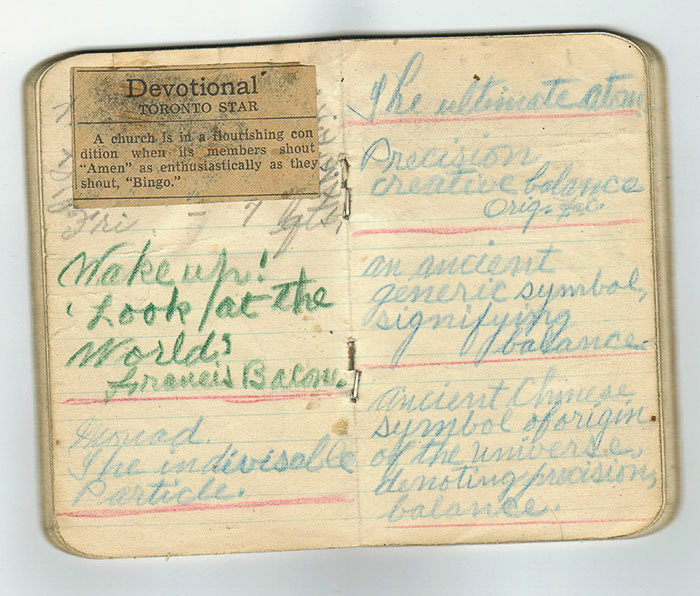 Devotional
TORONTO STAR
A church is in a flourishing con
dition when its members shout
"Amen" as enthusiastically as they
shout, "Bingo."
Fri
Wake up!
Look at the
World?
Francis Bacon.
Monad.
The indivesable
Particle.
The ultimate atom
Precision
creative balance
Orig. etc.
an ancient
generic symbol,
signifying
balance.
ancient Chinese
symbol of origin
of the universe.
denoting precision,
balance.